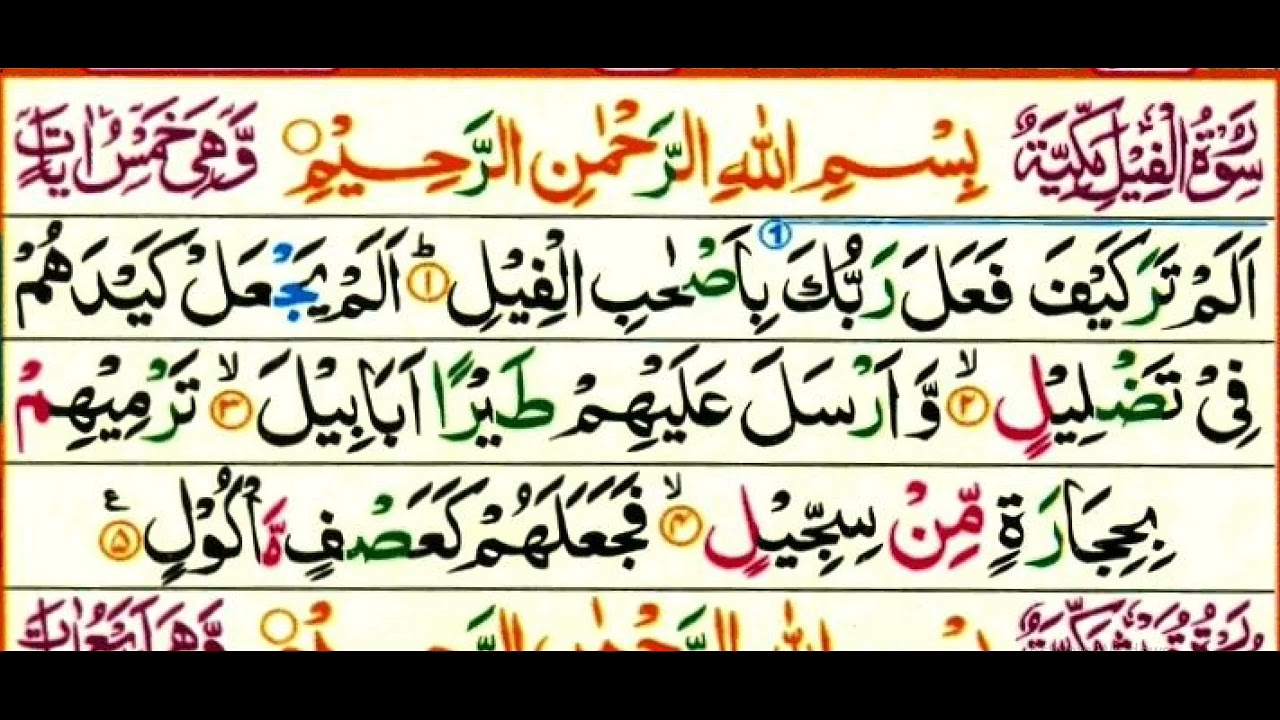 سُوْرَةُ الْفِيْلِ مَكِّيَّةٌ بِسْمِ اللّٰهِ الرَّحْمٰنِ الرَّحِيْمِ○ وَّهِيَ خَمْسُ اٰيَاتٍ
اَلَمْ تَرَ كَيْفَ فَعَلَ رَبُّكَ بِاَصْحٰبِ الْفِيْلِ ۱ ؕ اَلَمْ يَجْعَلْ كَيْدَهُمْ
فِيْ تَضْلِيْلٍ ۲ ۙ وَّ اَرْسَلَ عَلَيْهِمْ طَيْرًا اَبَابِيْلَ ۳ ۙ تَرْمِيْهِمْ
بِحِجَارَةٍ مِّنْ سِجِّيْلٍ ۴ ۙ فَجَعَلَهُمْ كَعَصْفٍ مَّاْكُوْلٍ ۵ ع
الرَّحْمٰنِ